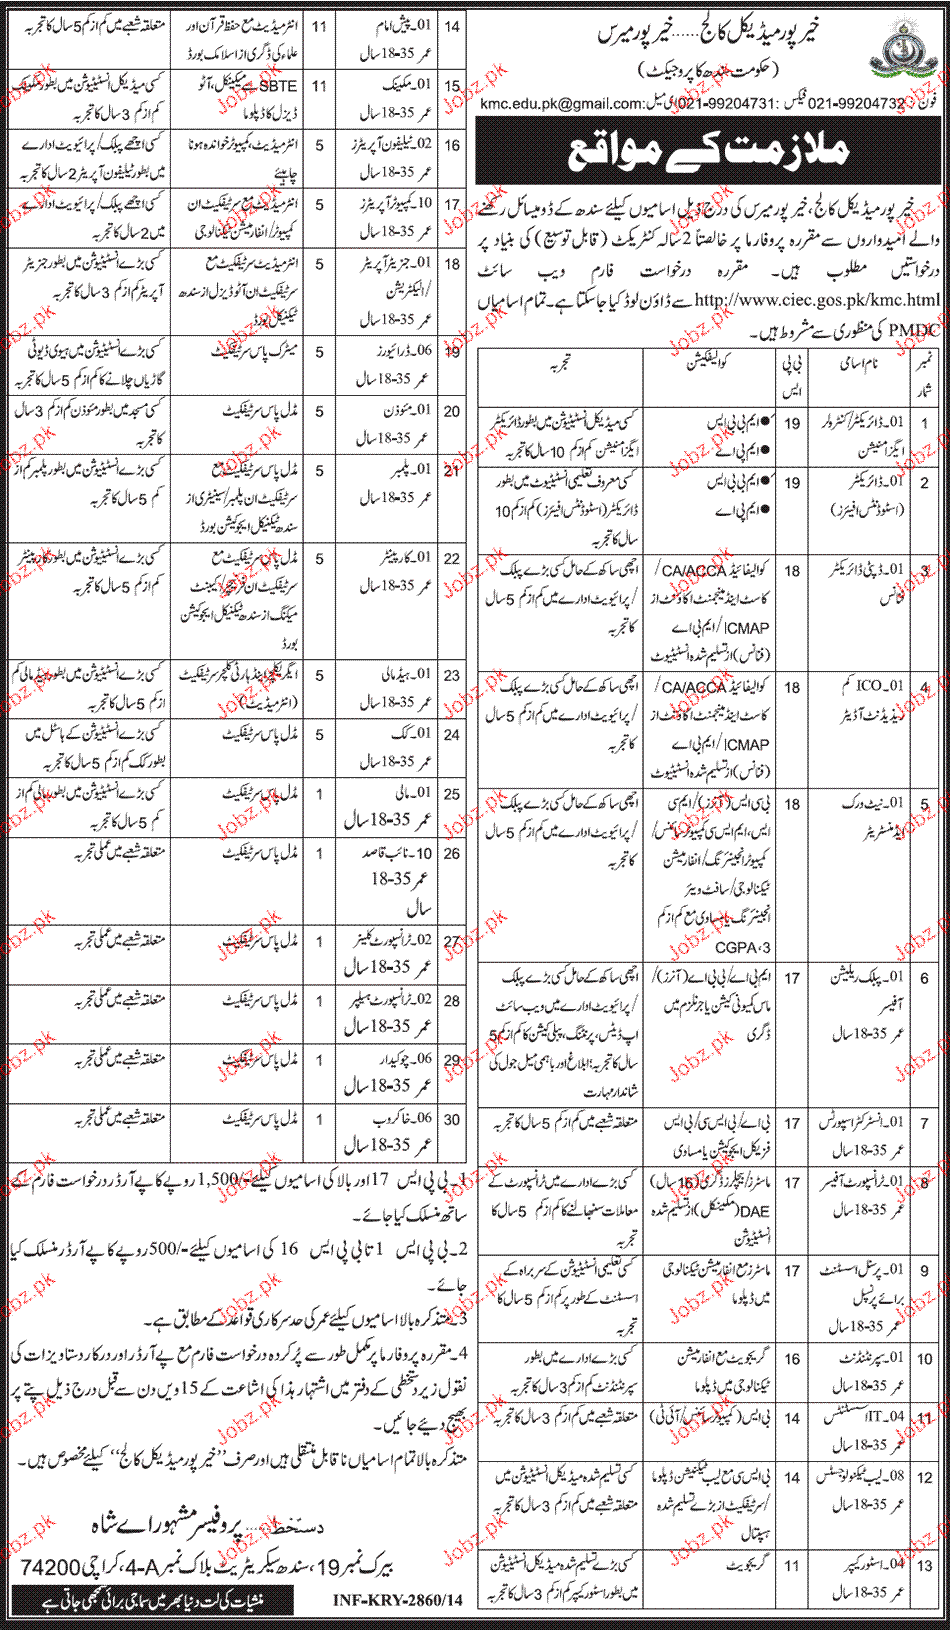 خیرپور میڈیکل کالج.....خیرپور میرس
(حکومت سندھ کا پروجیکٹ)
فون: 021-99204732 فیکس: 021-99204731 ای میل: kmc.edu.pk@gmail.com
ملازمت کے مواقع
خیرپور میڈیکل کالج، خیرپور میرس کی درج ذیل اسامیوں کیلئے سندھ کے ڈومیسائل رکھنے
والے امیدواروں سے مقررہ پروفارما پر خالصتاً 2 سالہ کنٹریکٹ (قابل توسیع) کی بنیاد پر
درخواستیں مطلوب ہیں۔ مقررہ درخواست فارم ویب سائٹ
http://www.ciec.gos.pk/kmc.html سے ڈاؤن لوڈ کیا جاسکتا ہے۔ تمام اسامیاں
PMDC کی منظوری سے مشروط ہیں۔
نمبر شمار | نام اسامی | بی پی ایس | کوالیفکیشن | تجربہ
1 | 01۔ ڈائریکٹر/کنٹرولر ایگزامنیشن | 19 | ● ایم بی بی ایس ● ایم بی اے | کسی میڈیکل انسٹیٹیوشن میں بطور ڈائریکٹر ایگزامنیشن کم از کم 10 سال کا تجربہ
2 | 01۔ ڈائریکٹر (اسٹوڈنٹس افیئرز) | 19 | ● ایم بی بی ایس ● ایم پی اے | کسی معروف تعلیمی انسٹیٹیوٹ میں بطور ڈائریکٹر (اسٹوڈنٹس افیئرز) کم از کم 10 سال کا تجربہ
3 | 01۔ ڈپٹی ڈائریکٹر فنانس | 18 | کوالیفائیڈ CA/ACCA/ کاسٹ اینڈ مینجمنٹ اکاؤنٹ از ICMAP/ایم بی اے (فنانس) از تسلیم شدہ انسٹیٹیوٹ | اچھی ساکھ کے حامل کسی بڑے پبلک /پرائیویٹ ادارے میں کم از کم 5 سال کا تجربہ
4 | 01۔ ICO کم ریذیڈنٹ آڈیٹر | 18 | کوالیفائیڈ CA/ACCA/ کاسٹ اینڈ مینجمنٹ اکاؤنٹ از ICMAP/ایم بی اے (فنانس) از تسلیم شدہ انسٹیٹیوٹ | اچھی ساکھ کے حامل کسی بڑے پبلک /پرائیویٹ ادارے میں کم از کم 5 سال کا تجربہ
5 | 01۔ نیٹ ورک ایڈمنسٹریٹر | 18 | بی سی ایس (آنرز)/ایم سی ایس، ایم ایس سی کمپیوٹر سائنس/ کمپیوٹر انجینئرنگ/انفارمیشن ٹیکنالوجی/سافٹ ویئر انجینئرنگ یا مساوی مع کم از کم CGPA،3 | اچھی ساکھ کے حامل کسی بڑے پبلک /پرائیویٹ ادارے میں کم از کم 5 سال کا تجربہ
6 | 01۔ پبلک ریلیشن آفیسر عمر 35-18 سال | 17 | ایم بی اے/بی بی اے (آنرز)/ ماس کمیونی کیشن یا جرنلزم میں ڈگری | اچھی ساکھ کے حامل کسی بڑے پبلک /پرائیویٹ ادارے میں ویب سائٹ اپ ڈیٹس، پرنٹنگ، پبلی کیشن کا کم از کم 5 سال کا تجربہ؛ ابلاغ اور باہمی میل جول کی شاندار مہارت
7 | 01۔ انسٹرکٹر اسپورٹس عمر 35-18 سال | 17 | بی اے/بی ایس سی/بی ایس فزیکل ایجوکیشن یا مساوی | متعلقہ شعبے میں کم از کم 5 سال کا تجربہ
8 | 01۔ ٹرانسپورٹ آفیسر عمر 35-18 سال | 17 | ماسٹرز/بیچلرز ڈگری (16 سال) DAE (مکینیکل) از تسلیم شدہ انسٹیٹیوشن | کسی بڑے ادارے میں ٹرانسپورٹ کے معاملات سنبھالنے کا کم از کم 5 سال کا تجربہ
9 | 01۔ پرسنل اسسٹنٹ برائے پرنسپل عمر 35-18 سال | 17 | ماسٹرز مع انفارمیشن ٹیکنالوجی میں ڈپلوما | کسی تعلیمی انسٹیٹیوشن کے سربراہ کے اسسٹنٹ کے طور پر کم از کم 5 سال کا تجربہ
10 | 01۔ سپرنٹنڈنٹ عمر 35-18 سال | 16 | گریجویٹ مع انفارمیشن ٹیکنالوجی میں ڈپلوما | کسی بڑے ادارے میں بطور سپرنٹنڈنٹ کم از کم 3 سال کا تجربہ
11 | 04۔ IT اسسٹنٹس عمر 35-18 سال | 14 | بی ایس (کمپیوٹر سائنس/آئی ٹی) | متعلقہ شعبے میں کم از کم 3 سال کا تجربہ
12 | 08۔ لیب ٹیکنولوجسٹس عمر 35-18 سال | 14 | بی ایس سی مع لیب ٹیکنیشن ڈپلوما /سرٹیفکیٹ از بڑے تسلیم شدہ ہسپتال | کسی تسلیم شدہ میڈیکل انسٹیٹیوشن میں متعلقہ شعبے میں کم از کم 3 سال کا تجربہ
13 | 04۔ اسٹور کیپر عمر 35-18 سال | 11 | گریجویٹ | کسی بڑے تسلیم شدہ میڈیکل انسٹیٹیوشن میں بطور اسٹور کیپر کم از کم 3 سال کا تجربہ
14 | 01۔ پیش امام عمر 35-18 سال | 11 | انٹرمیڈیٹ مع حفظ قرآن اور علماء کی ڈگری از اسلامک بورڈ | متعلقہ شعبے میں کم از کم 5 سال کا تجربہ
15 | 01۔ مکینک عمر 35-18 سال | 11 | SBTE سے مکینیکل، آٹو ڈیزل کا ڈپلوما | کسی میڈیکل انسٹیٹیوشن میں بطور مکینک کم از کم 3 سال کا تجربہ
16 | 02۔ ٹیلیفون آپریٹرز عمر 35-18 سال | 5 | انٹرمیڈیٹ، کمپیوٹر خواندہ ہونا چاہیئے | کسی اچھے پبلک/پرائیویٹ ادارے میں بطور ٹیلیفون آپریٹر 2 سال کا تجربہ
17 | 10۔ کمپیوٹر آپریٹرز عمر 35-18 سال | 5 | انٹرمیڈیٹ مع سرٹیفکیٹ ان کمپیوٹر/انفارمیشن ٹیکنالوجی | کسی اچھے پبلک/پرائیویٹ ادارے میں 2 سال کا تجربہ
18 | 01۔ جنریٹر آپریٹر /الیکٹریشن عمر 35-18 سال | 5 | انٹرمیڈیٹ سرٹیفکیٹ مع سرٹیفکیٹ ان آٹو ڈیزل از سندھ ٹیکنیکل بورڈ | کسی بڑے انسٹیٹیوشن میں بطور جنریٹر آپریٹر کم از کم 3 سال کا تجربہ
19 | 06۔ ڈرائیورز عمر 35-18 سال | 5 | میٹرک پاس سرٹیفکیٹ | کسی بڑے انسٹیٹیوشن میں ہیوی ڈیوٹی گاڑیاں چلانے کا کم از کم 5 سال کا تجربہ
20 | 01۔ مئوذن عمر 35-18 سال | 5 | مڈل پاس سرٹیفکیٹ | کسی مسجد میں بطور مئوذن کم از کم 3 سال کا تجربہ
21 | 01۔ پلمبر عمر 35-18 سال | 5 | مڈل پاس سرٹیفکیٹ مع سرٹیفکیٹ ان پلمبر/سینیٹری از سندھ ٹیکنیکل ایجوکیشن بورڈ | کسی بڑے انسٹیٹیوشن میں بطور پلمبر کم از کم 5 سال کا تجربہ
22 | 01۔ کارپینٹر عمر 35-18 سال | 5 | مڈل پاس سرٹیفکیٹ مع سرٹیفکیٹ ان فرنیچر/کیبنٹ میکنگ از سندھ ٹیکنیکل ایجوکیشن بورڈ | کسی بڑے انسٹیٹیوشن میں بطور کارپینٹر کم از کم 5 سال کا تجربہ
23 | 01۔ ہیڈ مالی عمر 35-18 سال | 5 | ایگریکلچر اینڈ ہارٹی کلچر سرٹیفکیٹ (انٹرمیڈیٹ) | کسی بڑے انسٹیٹیوشن میں بطور ہیڈ مالی کم از کم 5 سال کا تجربہ
24 | 01۔ کک عمر 35-18 سال | 5 | مڈل پاس سرٹیفکیٹ | کسی بڑے انسٹیٹیوشن کے ہاسٹل میں بطور کک کم از کم 5 سال کا تجربہ
25 | 01۔ مالی عمر 35-18 سال | 1 | مڈل پاس سرٹیفکیٹ | کسی بڑے انسٹیٹیوشن میں بطور مالی کم از کم 5 سال کا تجربہ
26 | 10۔ نائب قاصد عمر 35-18 سال | 1 | مڈل پاس سرٹیفکیٹ | متعلقہ شعبے میں عملی تجربہ
27 | 02۔ ٹرانسپورٹ کلینر عمر 35-18 سال | 1 | مڈل پاس سرٹیفکیٹ | متعلقہ شعبے میں عملی تجربہ
28 | 02۔ ٹرانسپورٹ ہیلپر عمر 35-18 سال | 1 | مڈل پاس سرٹیفکیٹ | متعلقہ شعبے میں عملی تجربہ
29 | 06۔ چوکیدار عمر 35-18 سال | 1 | مڈل پاس سرٹیفکیٹ | متعلقہ شعبے میں عملی تجربہ
30 | 06۔ خاکروب عمر 35-18 سال | 1 | مڈل پاس سرٹیفکیٹ | متعلقہ شعبے میں عملی تجربہ
1۔ بی پی ایس 17 اور بالا کی اسامیوں کیلئے -/1,500 روپے کا پے آرڈر درخواست فارم کے
ساتھ منسلک کیا جائے۔
2۔ بی پی ایس 1 تا بی پی ایس 16 کی اسامیوں کیلئے -/500 روپے کا پے آرڈر منسلک کیا
جائے۔
3۔ متذکرہ بالا اسامیوں کیلئے عمر کی حد سرکاری قواعد کے مطابق ہے۔
4۔ مقررہ پروفارما پر مکمل طور سے پُر کردہ درخواست فارم مع پے آرڈر اور درکار دستاویزات کی
نقول زیر دستخطی کے دفتر میں اشتہار ہذا کی اشاعت کے 15 ویں دن سے قبل درج ذیل پتے پر
بھیج دیئے جائیں۔
متذکرہ بالا تمام اسامیاں ناقابل منتقلی ہیں اور صرف ”خیرپور میڈیکل کالج“ کیلئے مخصوص ہیں۔
دستخط..... پروفیسر مشہور اے شاہ
بیرک نمبر 19، سندھ سیکریٹریٹ بلاک نمبر 4-A، کراچی 74200
INF-KRY-2860/14
منشیات کی لت دنیا بھر میں سماجی برائی سمجھی جاتی ہے
Jobz.pk